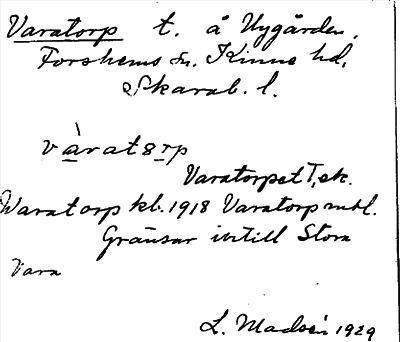 Varatorp t. å Nygården,
Forshems sn. Kinne hd,
Skarab. l.
vàratorp
Varatorpet T, ek.
Waratorp kb. 1918 Varatorp mtl.
Gränsar intill Stora
Vara
L. Madsén 1929